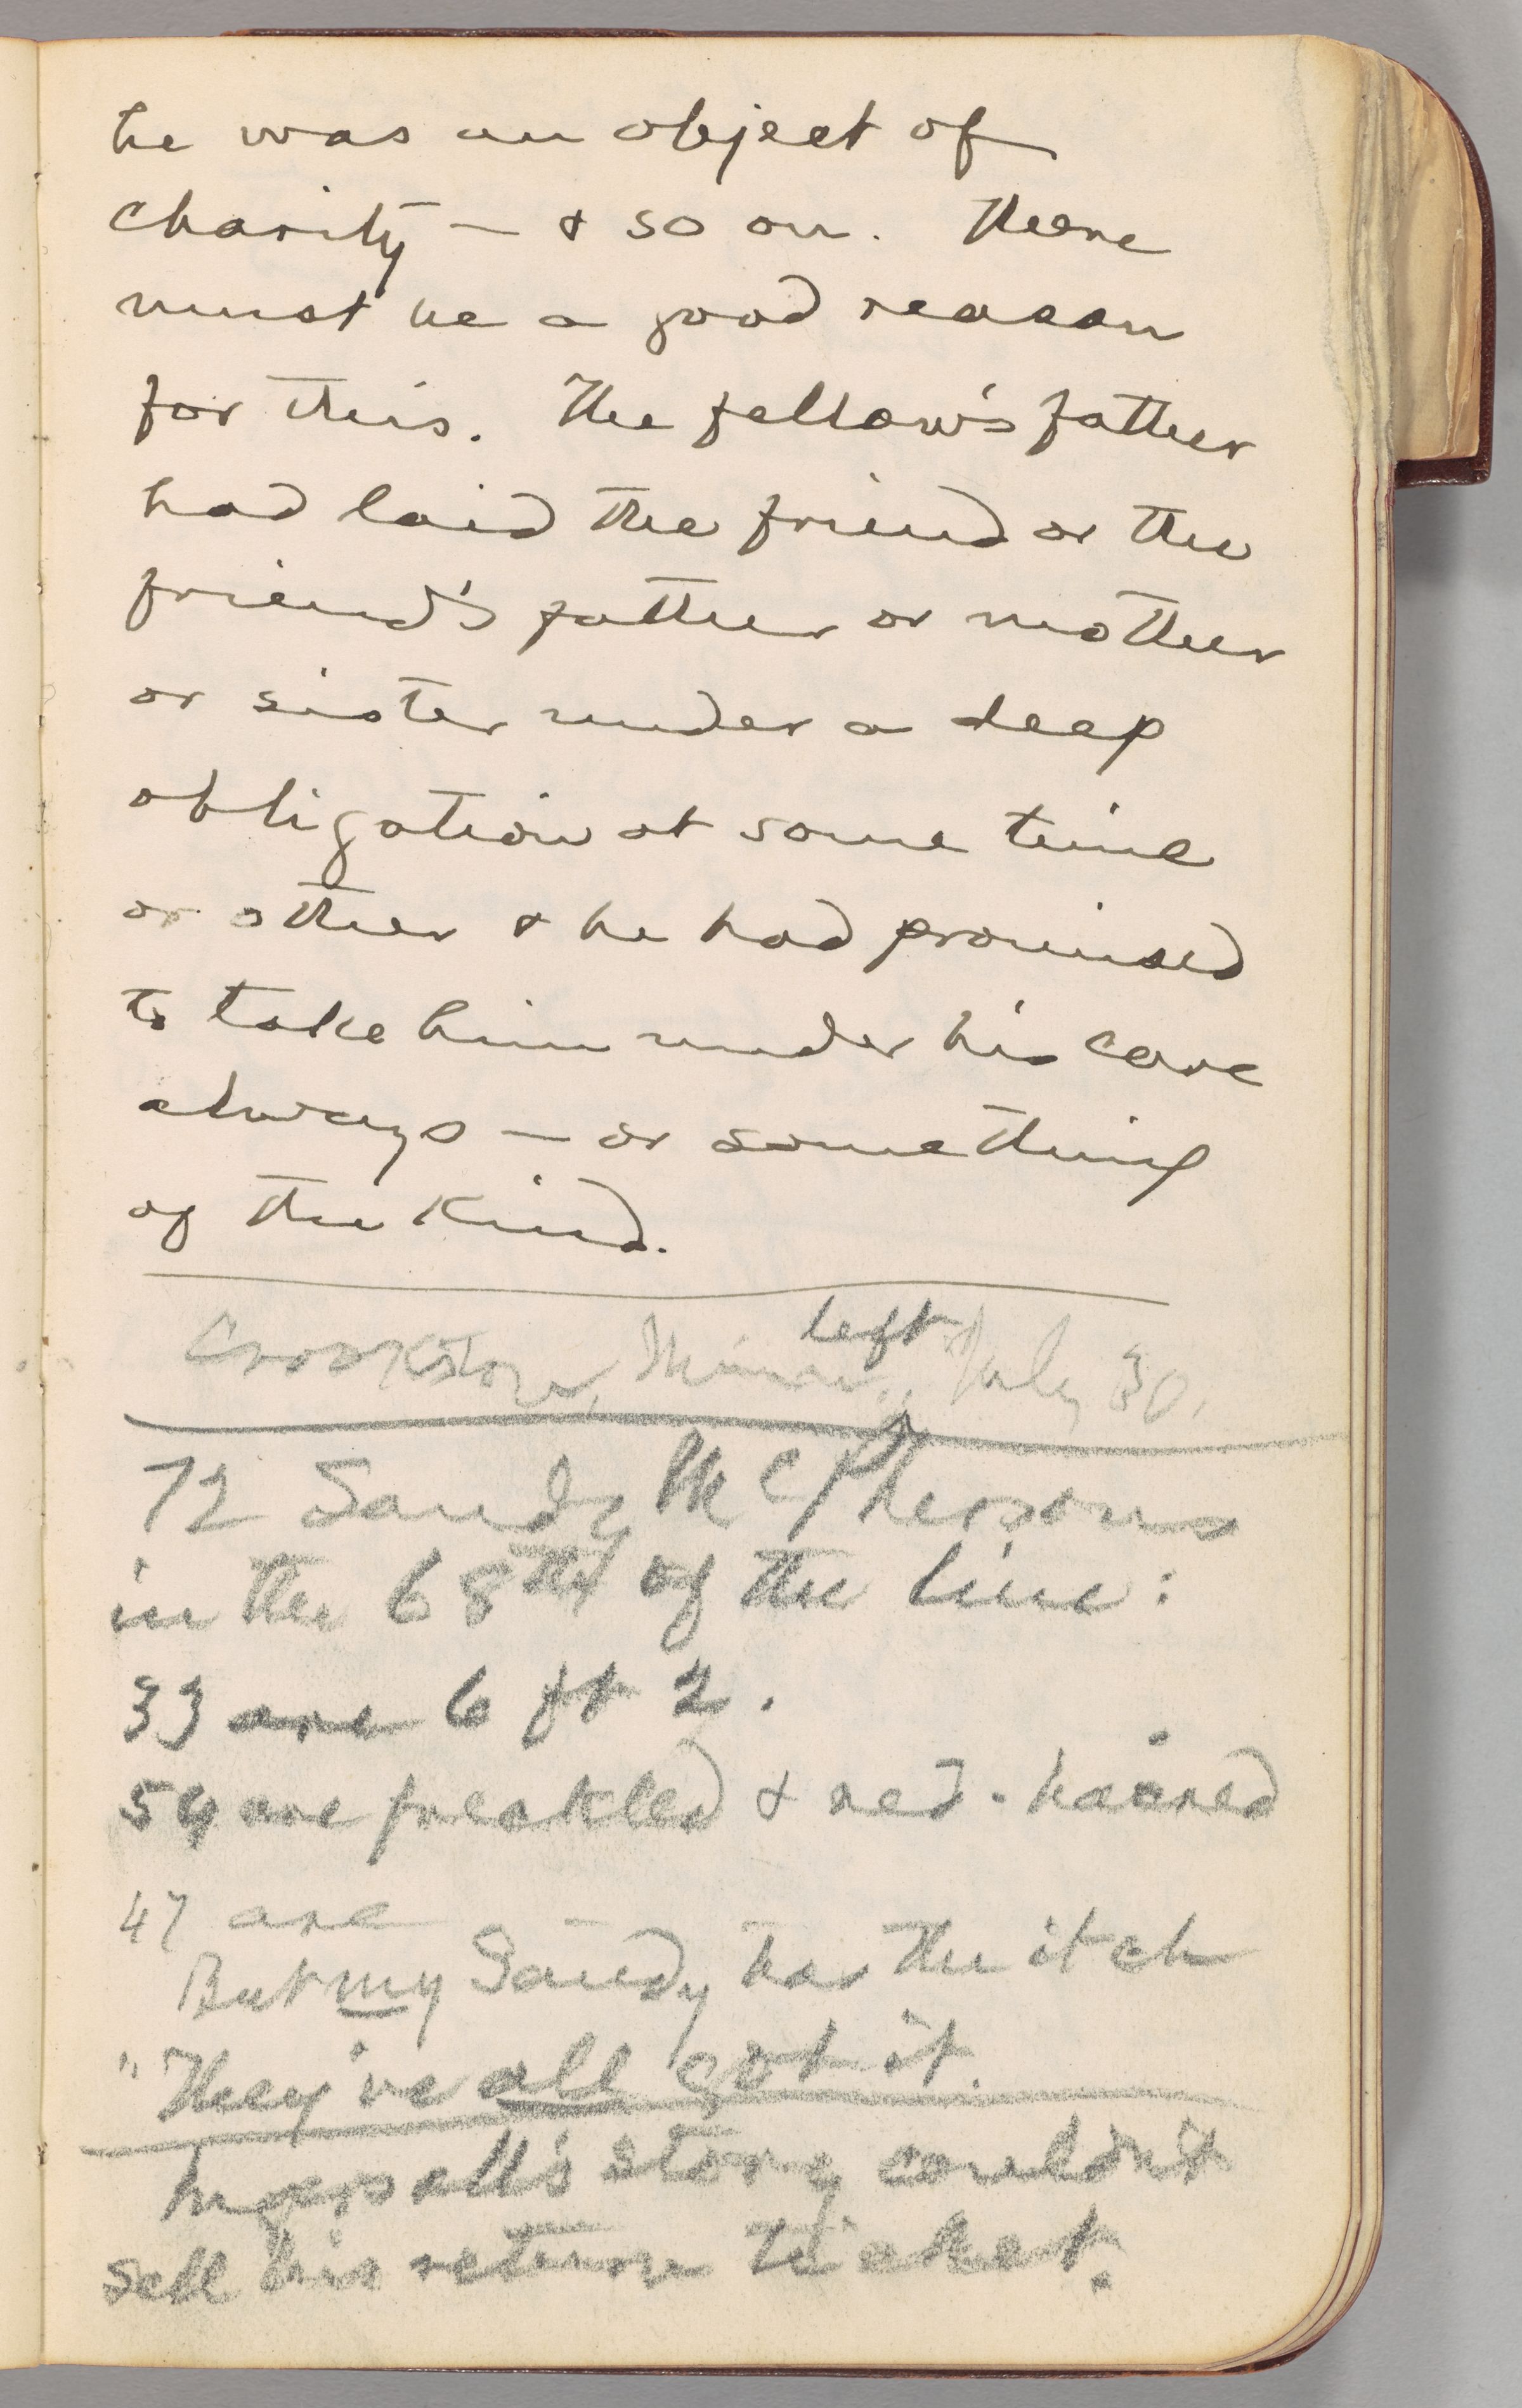 he was an object of
charity — & so on. There
must be a good reason
for this. The fellow's father
had laid the friend or the
friend's father or mother
or sister under a deep
obligation at some time
or other & he had promised
to take him under his care
always — or something
of the kind.
Crookston, Minn., left July 30.
72 Sandy McPhersons
in the 68th of the line:
33 are 6 ft 2.
54 are freckled & red-haired
47 are
But my Sandy has the itch
"They've all got it.
Ingersoll's story couldn't
sell his return ticket.